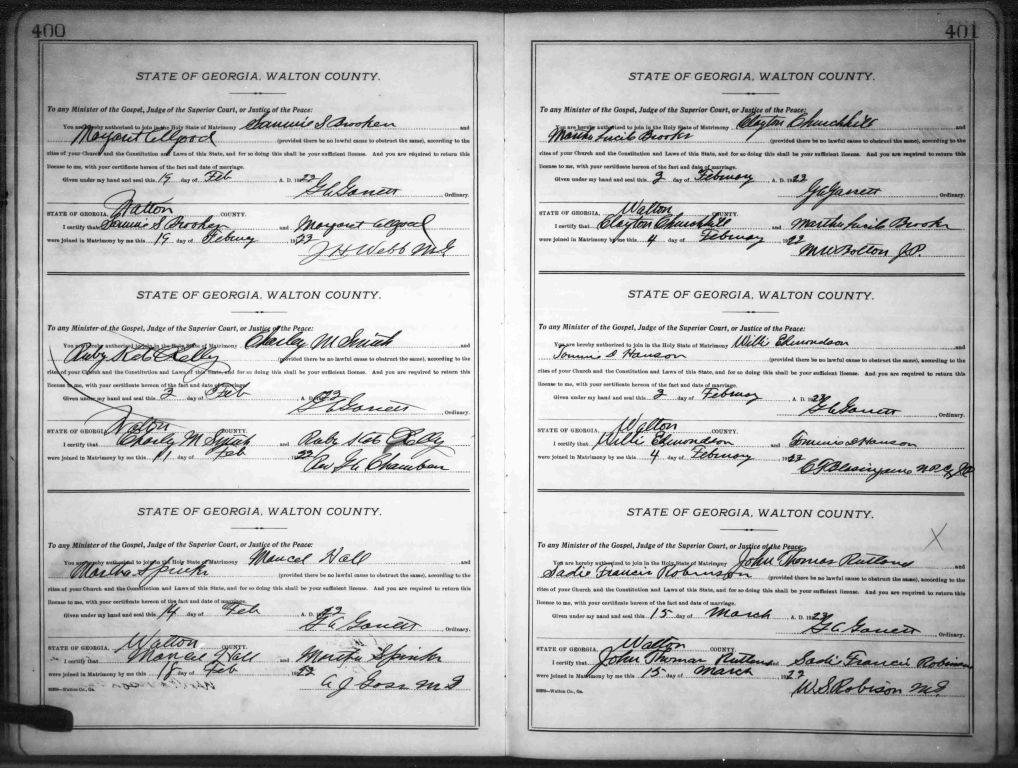 400
STATE OF GEORGIA, WALTON COUNTY.
To any Minister of the Gospel, Judge of the Superior Court, or Justice of the Peace:
You are hereby authorized to join in the Holy State of Matrimony Sammie S Brooken and
Margaret Allgood (provided there be no lawful cause to obstruct the same), according to the
rites of your Church and the Constitution and Laws of this State, and for so doing this shall be your sufficient license. And you are required to return this
license to me, with your certificate hereon of the fact and date of marriage.
Given under my hand and seal this 19 day of Feb A. D. 1923
Garrett Ordinary.
STATE OF GEORGIA, Walton COUNTY.
I certify that Sammie S Brooken and Margaret Allgood
were joined in Matrimony by me this 19 day of 1923
J H Webb M G
STATE OF GEORGIA, WALTON COUNTY.
To any Minister of the Gospel, Judge of the Superior Court, or Justice of the Peace:
You are hereby authorized to join in the Holy State of Matrimony Charley M Smith and
Ruby Kelly (provided there be no lawful cause to obstruct the same), according to the
rites of your Church and the Constitution and Laws of this State, and for so doing this shall be your sufficient license. And you are required to return this
license to me, with your certificate hereon of the fact and date of marriage.
Given under my hand and seal this 3 day of Feb A. D.
Garrett Ordinary.
STATE OF GEORGIA, Walton COUNTY.
I certify that Charly M Smith and Ruby Kelly
were joined in Matrimony by me this 11 day of Feb
Rev
STATE OF GEORGIA, WALTON COUNTY.
To any Minister of the Gospel, Judge of the Superior Court, or Justice of the Peace:
You are hereby authorized to join in the Holy State of Matrimony Mancel Hall and
Martha Spinks (provided there be no lawful cause to obstruct the same), according to the
rites of your Church and the Constitution and Laws of this State, and for so doing this shall be your sufficient license. And you are required to return this
license to me, with your certificate hereon of the fact and date of marriage.
Given under my hand and seal this 14 day of Feb A. D.
Garrett Ordinary.
STATE OF GEORGIA, Walton COUNTY.
I certify that Mancel Hall and Martha Spinks
were joined in Matrimony by me this 18 day of Feb
A J Goss M G
401
STATE OF GEORGIA, WALTON COUNTY.
To any Minister of the Gospel, Judge of the Superior Court, or Justice of the Peace:
You are hereby authorized to join in the Holy State of Matrimony Clayton Churchill and
Martha Lucile Brooks (provided there be no lawful cause to obstruct the same), according to the
rites of your Church and the Constitution and Laws of this State, and for so doing this shall be your sufficient license. And you are required to return this
license to me, with your certificate hereon of the fact and date of marriage.
Given under my hand and seal this 3 day of February A. D. 1923
Garrett Ordinary.
STATE OF GEORGIA, Walton COUNTY.
I certify that Clayton Churchill and Martha Lucile Brooks
were joined in Matrimony by me this 4 day of February 1923
M W Bolton J.P.
STATE OF GEORGIA, WALTON COUNTY.
To any Minister of the Gospel, Judge of the Superior Court, or Justice of the Peace:
You are hereby authorized to join in the Holy State of Matrimony Willi Edmondson and
Tommie D Hanson (provided there be no lawful cause to obstruct the same), according to the
rites of your Church and the Constitution and Laws of this State, and for so doing this shall be your sufficient license. And you are required to return this
license to me, with your certificate hereon of the fact and date of marriage.
Given under my hand and seal this 3 day of February A. D. 1923
Garrett Ordinary.
STATE OF GEORGIA, Walton COUNTY.
I certify that Willi Edmondson and Tommie D Hanson
were joined in Matrimony by me this 4 day of February 1923
STATE OF GEORGIA, WALTON COUNTY.
To any Minister of the Gospel, Judge of the Superior Court, or Justice of the Peace:
You are hereby authorized to join in the Holy State of Matrimony John Thomas Rutland and
Sadie Francis Robinson (provided there be no lawful cause to obstruct the same), according to the
rites of your Church and the Constitution and Laws of this State, and for so doing this shall be your sufficient license. And you are required to return this
license to me, with your certificate hereon of the fact and date of marriage.
Given under my hand and seal this 15 day of March A. D.
Garrett Ordinary.
STATE OF GEORGIA, Walton COUNTY.
I certify that John Thomas Rutland and Sadie Francis Robinson
were joined in Matrimony by me this 15 day of March
W. S. Robison M G